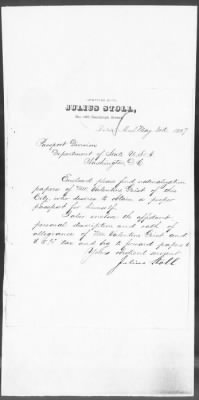 OFFICE OF
JULIUS STOLL,
No. Randolph Street,
May 1887
Passport Division
Department of State U.S.A
Washington D.C.
Enclosed please find naturalization
papers of Mr Valentine Grist of this
City, who desires to obtain a proper
passport for himself.
I also enclose the affidavit
personal description and oath of
allegiance of Mr Valentine Grist and
tax and beg to forward papers to
Yours obedient servant
Julius Stoll